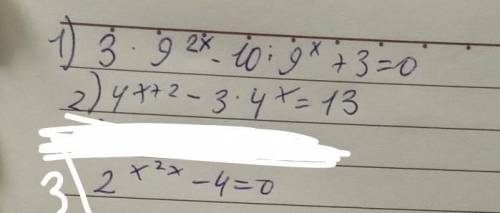 1) 3 · 9^{2x} - 10 : 9^x + 3 = 0
2) 4^{x+2} - 3 · 4^x = 13
3) 2^{x^{2x}} - 4 = 0